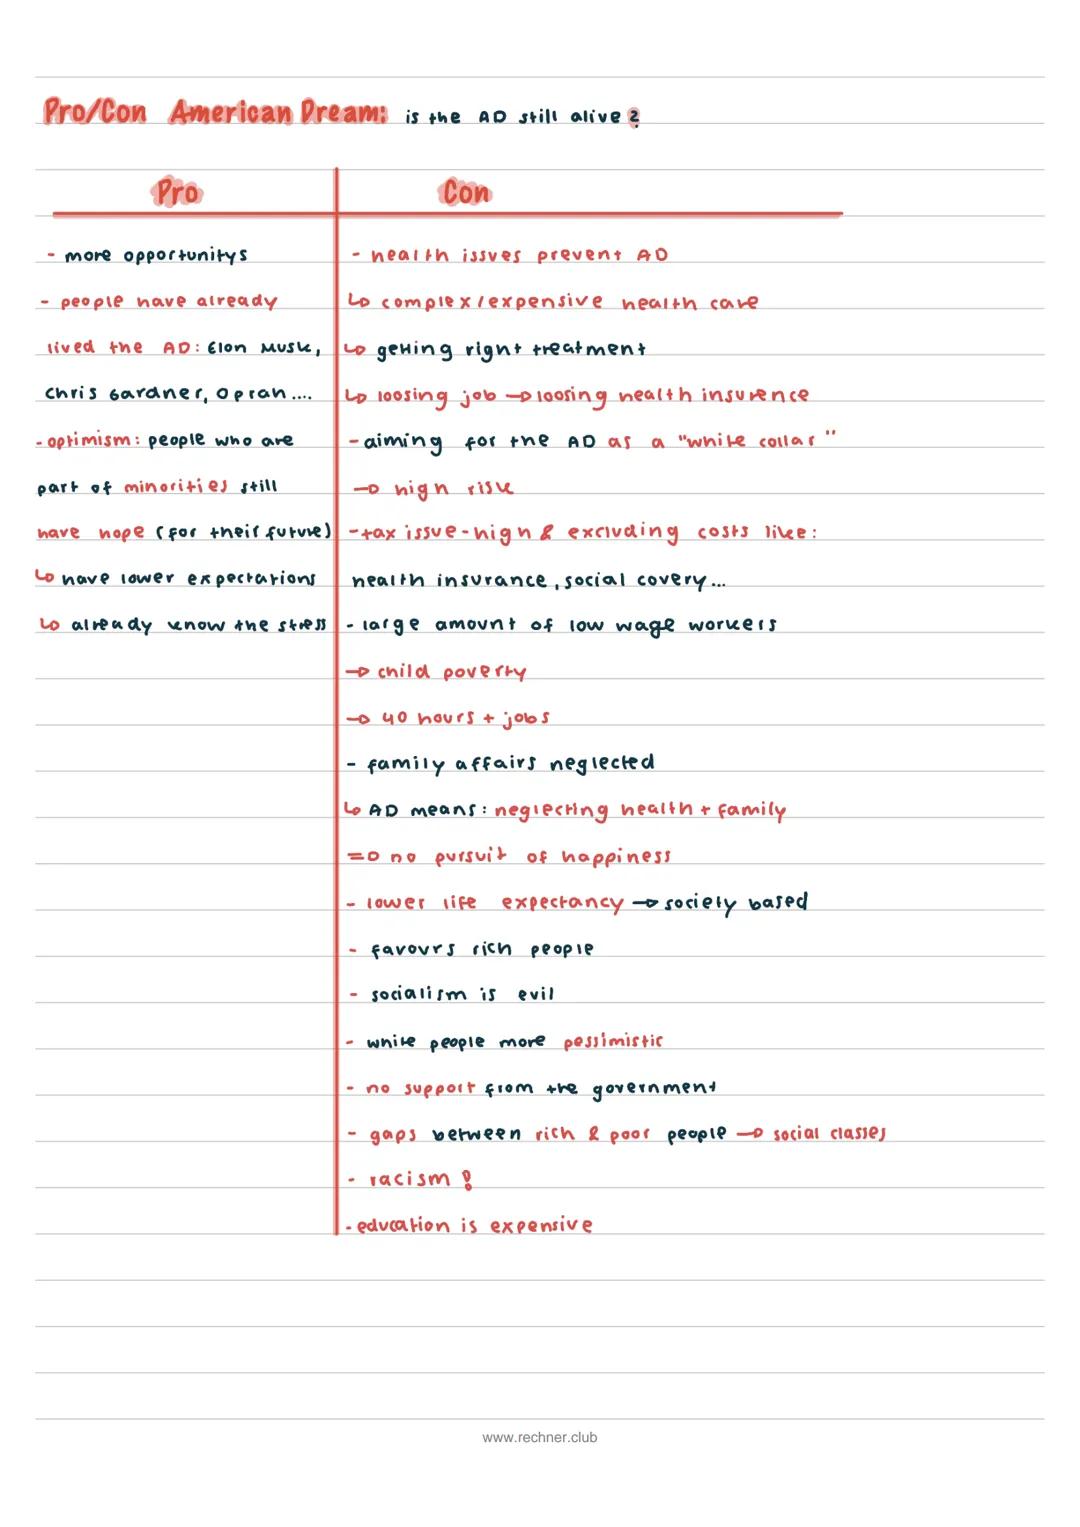 Pro/Con American Dream: is the AD still alive?
Pro
- more opportunitys
- people have already
lived the AD: Elon Musk,
Chris Gardner, Oprah....
- optimism: people who are
part of minorities still
have hope (for their future)
↳ have lower expectations
↳ already know the stress
Con
- health issues prevent AD
↳ complex/expensive health care
↳ getting right treatment
↳ loosing job → loosing health insurence
- aiming for the AD as a "white collar"
→ high risk
- tax issue - high & excluding costs like:
health insurance, social covery...
- large amount of low wage workers
→ child poverty
→ 40 hours + jobs
- family affairs neglected
↳ AD means: neglecting health + family
=> no pursuit of happiness
- lower life expectancy → society based
- favours rich people
- socialism is evil
- white people more pessimistic
- no support from the government
- gaps between rich & poor people → social classes
- racism!
- education is expensive
www.rechner.club